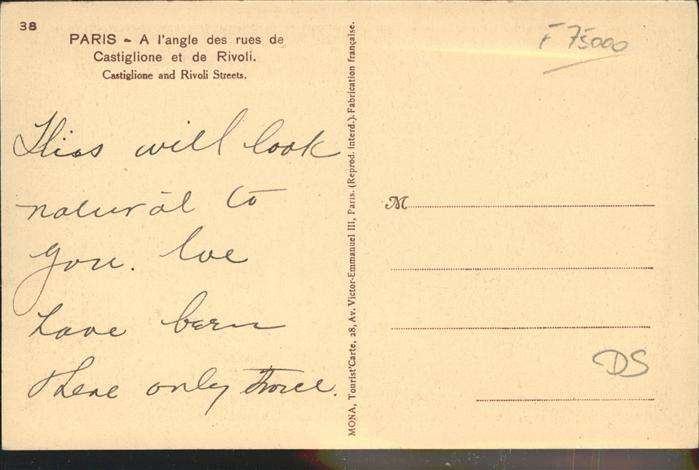 38
PARIS - A l'angle des rues de
Castiglione et de Rivoli.
Castiglione and Rivoli Streets.
This will look
natural to
you. We
have been
there only twice.
MONA, Tourist'Carte, 28, Av. Victor-Emmanuel III, Paris. (Reprod. interd.). Fabrication française.
F 75000
M
DS